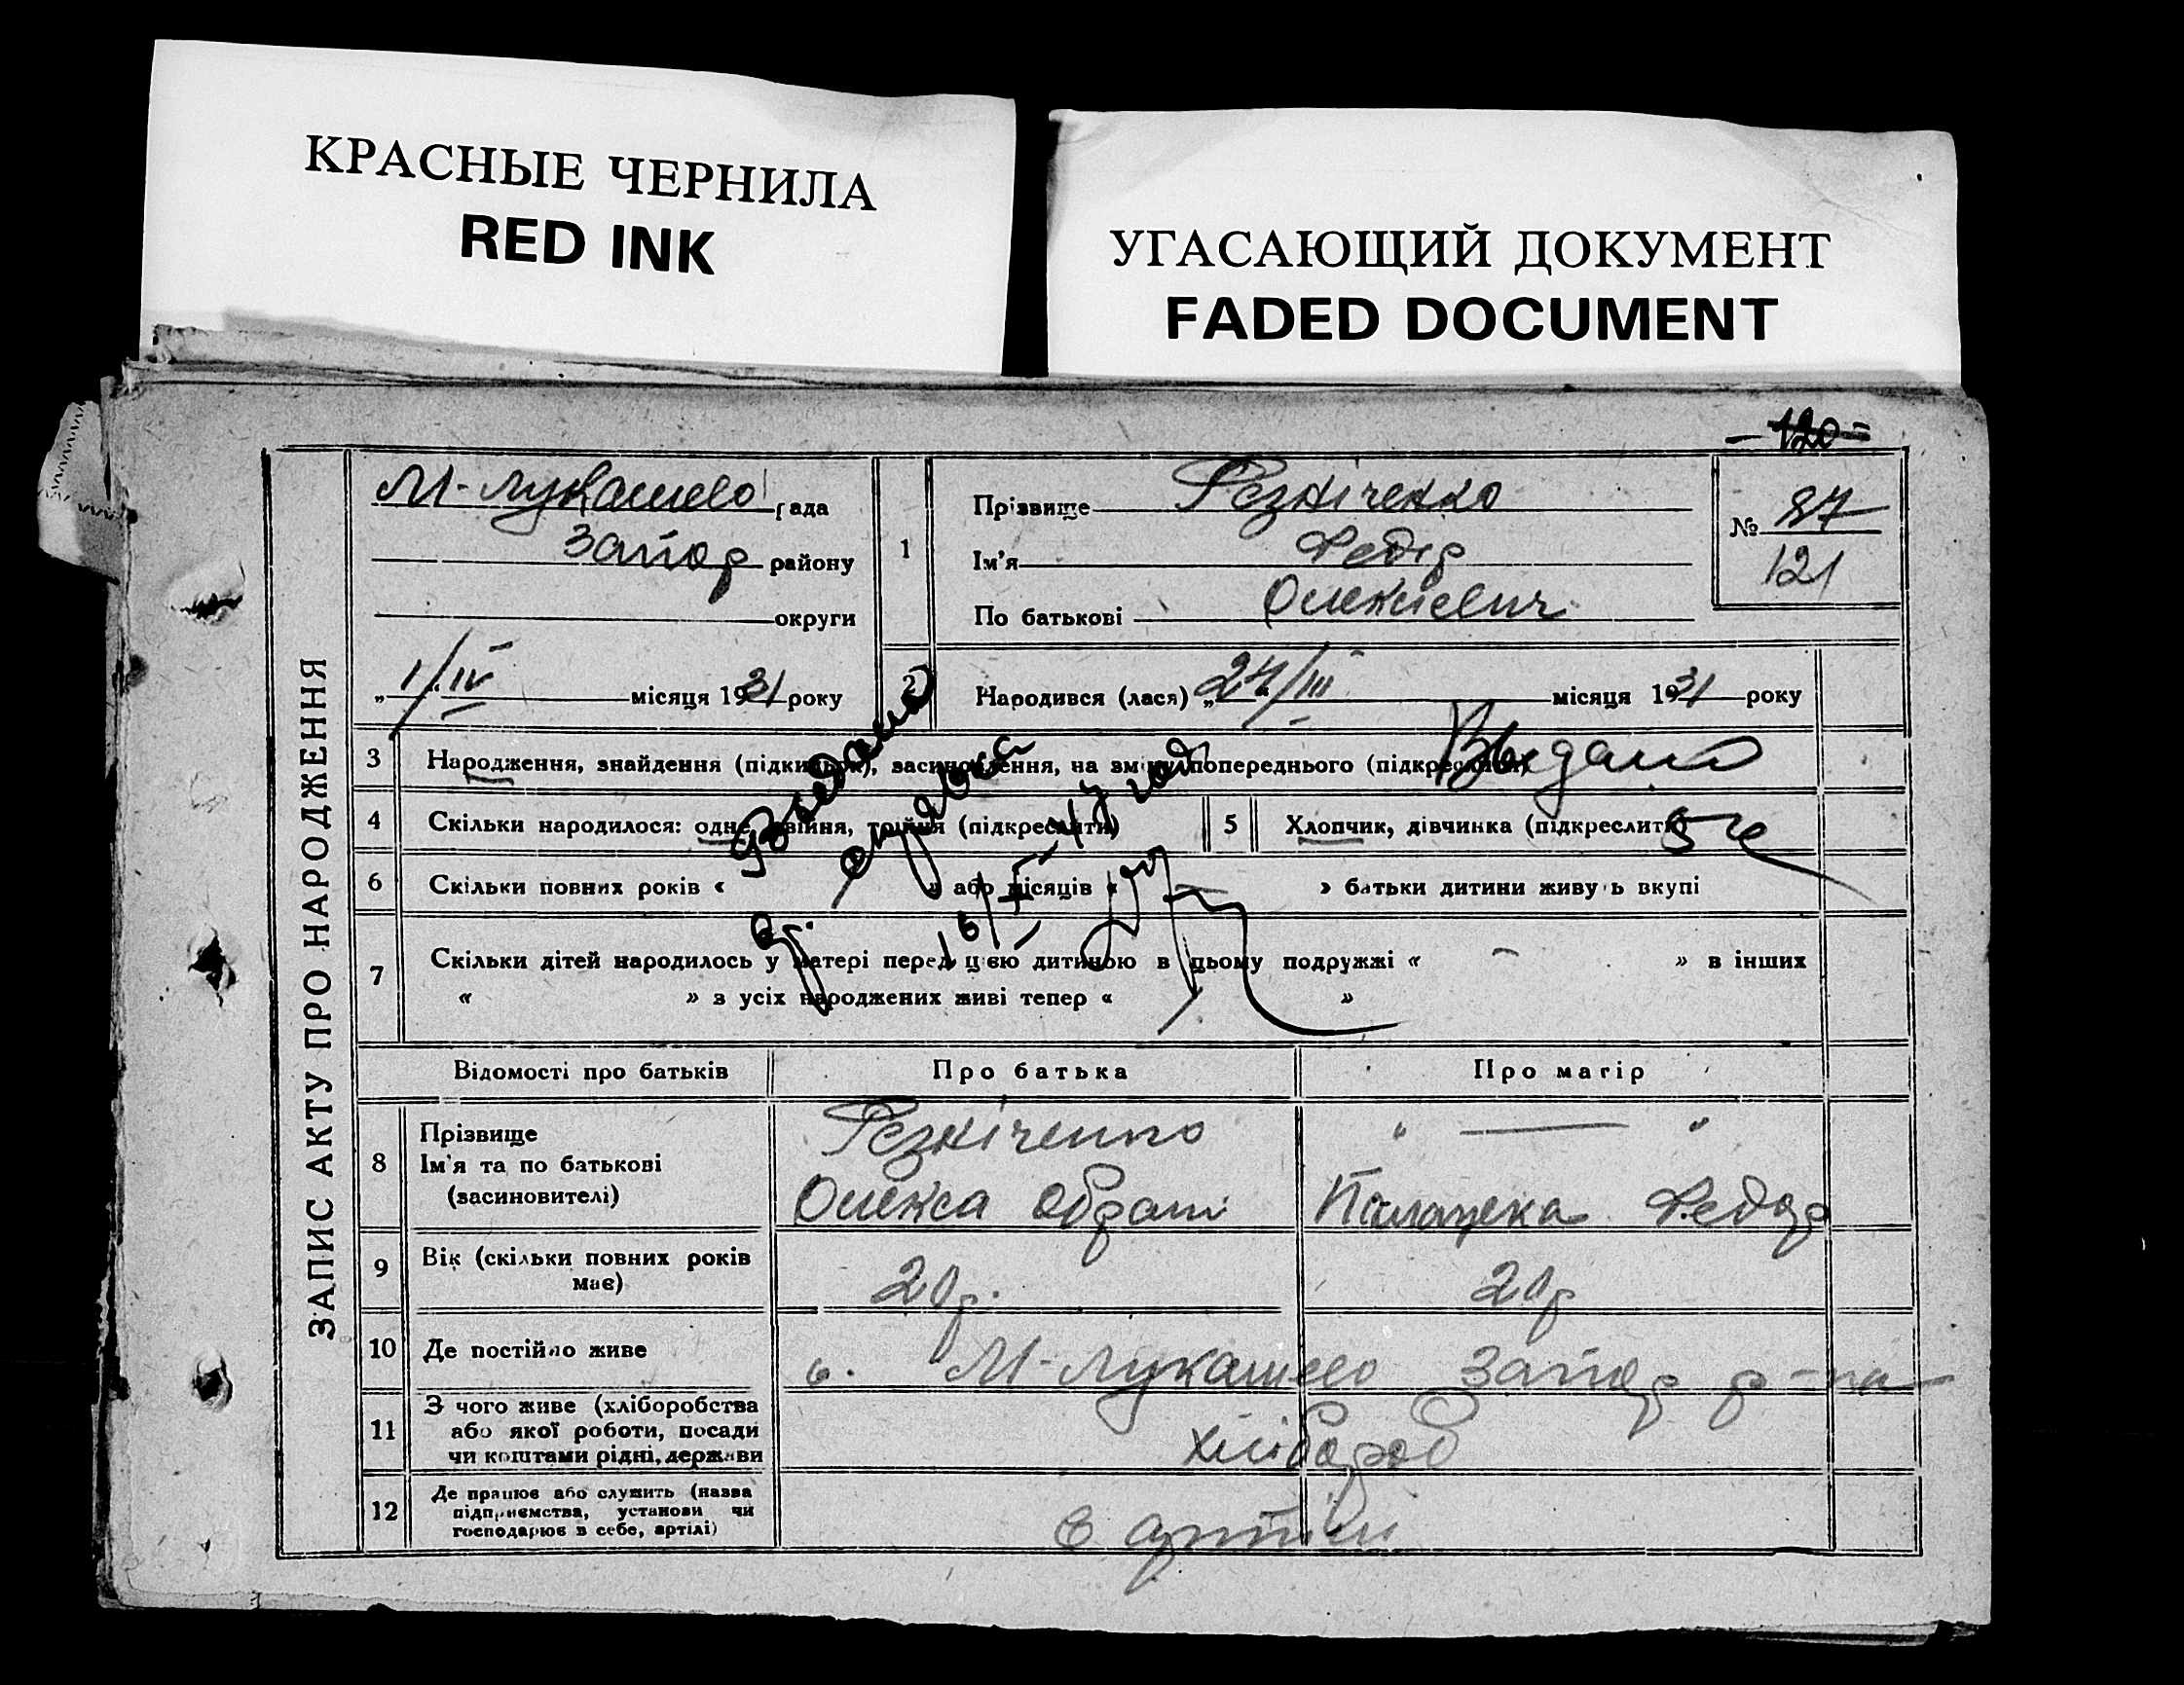 КРАСНЫЕ ЧЕРНИЛА
RED INK
УГАСАЮЩИЙ ДОКУМЕНТ
FADED DOCUMENT
-120-
ЗАПИС АКТУ ПРО НАРОДЖЕННЯ
М-Лукашево рада
Запор району
округи
"1/IV місяця 1931 року
1
Прізвище Рєзніченко
Ім'я Федір
По батькові Олексієвич
№ 87
121
2
Народився (лася) „27/III місяця 1931 року
3 Народження, знайдення (підкидьок), засиновлення, на зміну попереднього (підкреслити)
Выдано
4 Скільки народилося: одне, двійня, трійня (підкреслити)
5 Хлопчик, дівчинка (підкреслити)
6 Скільки повних років « » або місяців « » батьки дитини живуть вкупі
7 Скільки дітей народилось у матері перед цією дитиною в цьому подружжі « – » в інших
« » з усіх народжених живі тепер « »
Відомості про батьків Про батька Про матір
8 Прізвище
Ім'я та по батькові
(засиновителі)
Рєзніченко
Олекса
" — "
Федор
9 Вік (скільки повних років
має)
20р. 20р
10 Де постійно живе
с. М-Лукашево Запор р-на
11 З чого живе (хліборобства
або якої роботи, посади
чи коштами рідні, держави
хлібороб
12 Де працює або служить (назва
підприємства, установи чи
господарює в себе, артілі)
в артілі